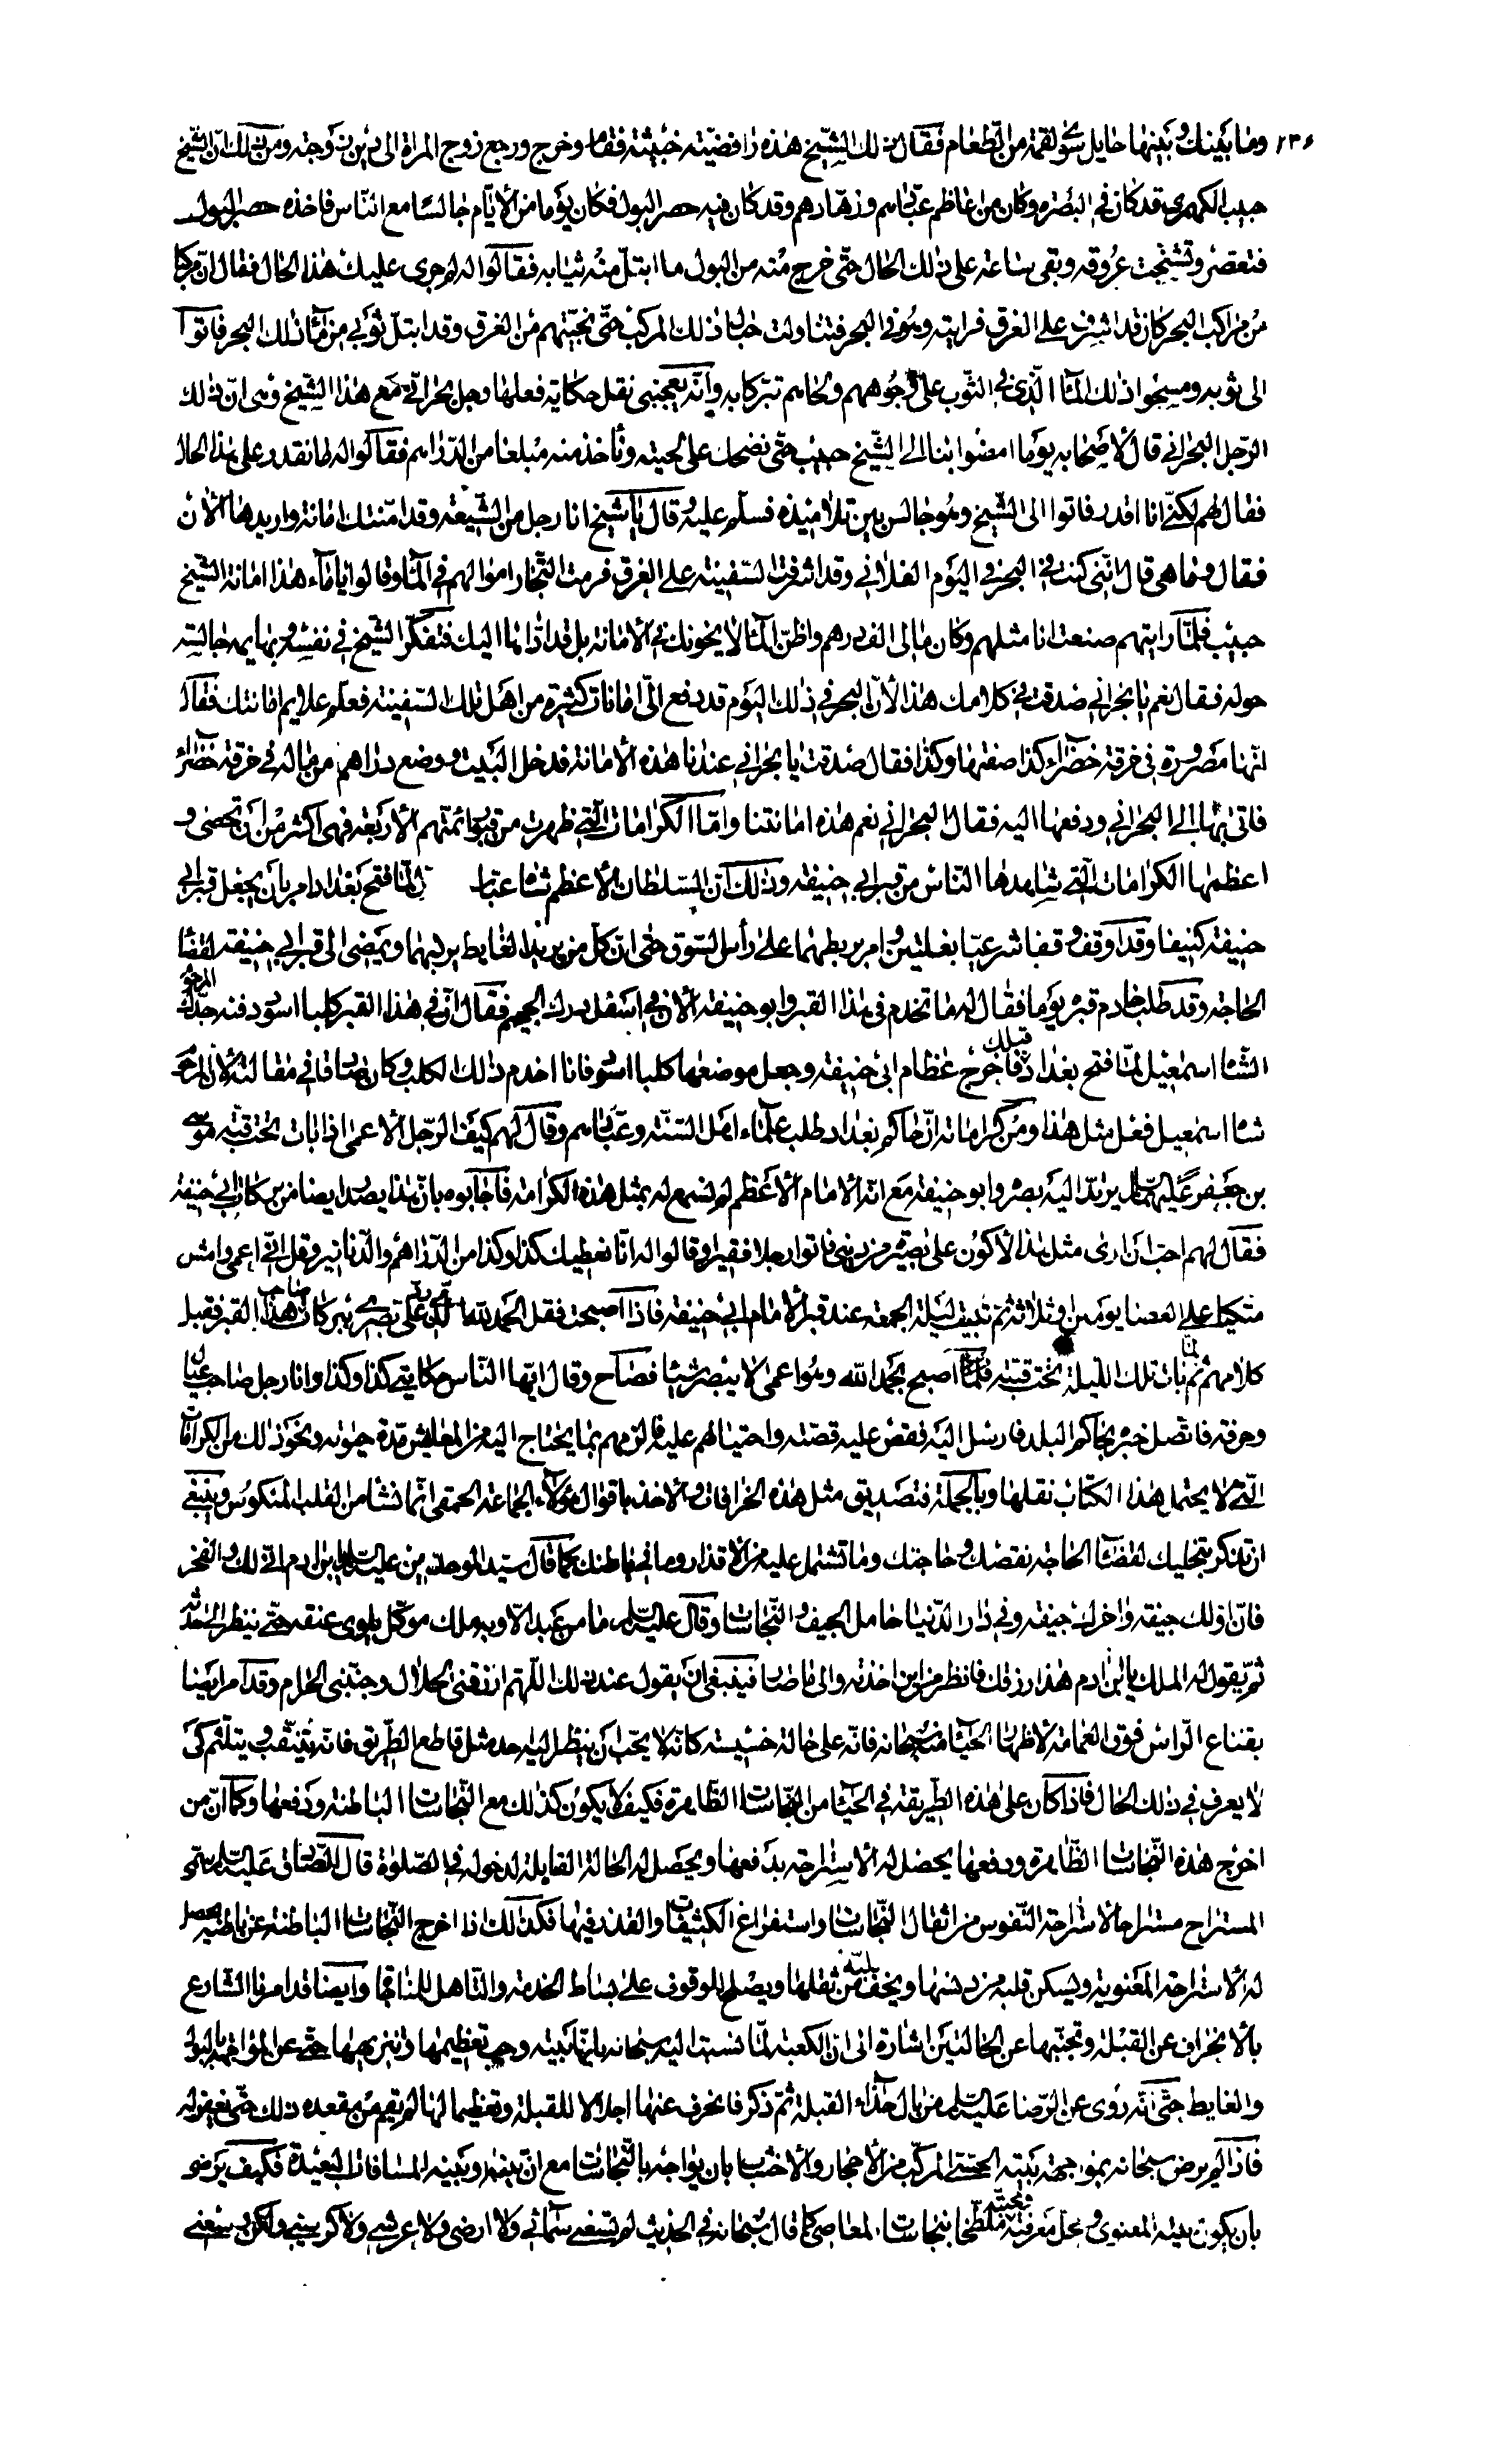 وما بينك وبينها حايل سوى لقمة من الطعام فقال ذلك الشيخ هذه رافضيته خبيثة فقام وخرج ورجع زوج المراة الى دين زوجته ومن ذلك ان الشيخ
حبيب الكهمري قد كان في البصره وكان من اعاظم عبّادهم وزهّادهم وقد كان فيه حصر البول فكان يوما من الأيام جالسا مع الناس فاخذه حصر البول
فتعصر وتشنجت عروقه وبقى ساعة على ذلك الحال حتى خرج منه من البول ما ابتلّ منه ثيابه فقالوا له لم جرى عليك هذا الحال فقال ان مركبا
من مراكب البحر كان قد اشرف على الغرق فرايته وهو في البحر فتناولت حبال ذلك المركب حتى نجيتهم من الغرق وقد ابتل ثوبى من ماء ذلك البحر فاتوا
الى ثوبه ومسحوا ذلك الماء الذى في الثوب على وجوههم ولحاهم تبركا به وانه يعجبنى نقل حكاية فعلها رجل بحرانى مع هذا الشيخ وهى ان ذلك
الرجل البحراني قال لأصحابه يوما امضوا بنا الى الشيخ حبيب حتى نضحك على لحيته ونأخذ منه مبلغا من الدراهم فقالوا له ما نقدر على هذا الحال
فقال لهم لكني انا اقدر فاتوا الى الشيخ وهو جالس بين تلاميذه فسلم عليه وقال يا شيخ انا رجل من الشيعة وقد امنتك امانة واريدها الان
فقال وما هى قال اننى كنت في البحر في اليوم الفلانى وقد اشرفت السفينة على الغرق فرمت التجار اموالهم في الماء وقالوا يا ماء هذا امانة الشيخ
حبيب فلما رايتهم صنعت انا مثلهم وكان مالى الف درهم واظن الماء لا يخونك في الامانة بل قد اداها اليك فتفكر الشيخ في نفسه وبهايمه جالسة
حوله فقال نعم يا بحرانى صدقت في كلامك هذا لأن البحر في ذلك اليوم قد دفع الىّ امانات كثيرة من اهل تلك السفينة فعلم علايم امانتك فقال
انها مصرورة في خرقة خضراء كذا صفتها وكذا فقال صدقت يا بحرانى عندنا هذه الأمانة فدخل البيت ووضع دراهم من ماله في خرقة خضراء
فاتى بها الى البحراني ودفعها اليه فقال البحراني نعم هذه امانتنا وامّا الكرامات التي ظهرت من قبور ائمتهم الأربعة فهى اكثر من ان تحصى و
اعظمها الكرامات التي شاهدها الناس من قبر ابى حنيفة وذلك ان السلطان الأعظم شاه عباس لما فتح بغداد امر بان يجعل قبر ابى
حنيفة كنيفا وقد اوقف وقفا شرعيا بغلتين وامر بربطهما على رأس السوق حتى ان كل من يريد الغايط يركبهما ويمضى الى قبر ابى حنيفة لقضاء
الحاجة وقد طلب خادم قبره يوما فقال له ما تخدم في هذا القبر وابو حنيفة الان في اسفل درك الجحيم فقال ان في هذا القبر كلبا اسود دفنه جدّك المرحوم
الشاه اسمعيل لمّا فتح بغداد قبلك فاخرج عظام ابى حنيفة وجعل موضعها كلبا اسود فانا اخدم ذلك الكلب وكان صادقا في مقالته لأن المرحوم
شاه اسمعيل فعل مثل هذا ومن كراماته ان حاكم بغداد طلب علماء اهل السنّة وعبّادهم وقال لهم كيف الرجل الأعمى اذا بات تحت قبّة موسى
بن جعفر عليهما السلام يرتد اليه بصره وابو حنيفة مع انه الامام الأعظم لم نسمع له بمثل هذه الكرامة فاجابوه بان هذا يصدر ايضا من بركات ابى حنيفة
فقال لهم احب ان ارى مثل هذا لأكون على بصيرة من دينى فاتوا رجلا فقيرا وقالوا له انا نعطيك كذا وكذا من الدراهم والدنانير وقل انى اعمى وامش
متكيا على العصا يومين او ثلاثة ثم تبيت ليلة الجمعة عند قبر الأمام ابى حنيفة فاذا اصبحت فقل الحمد لله الذى ردّ علىّ بصرى ببركات صاحب هذا القبر فقبل
كلامهم ثم بات تلك الليلة تحت قبته فلما اصبح بحمد الله وهو اعمى لا يبصر شيئا فصاح وقال ايها الناس حكايتى كذا وكذا وانا رجل صاحب عيال
وحرفة فاتصل خبره بحاكم البلد فارسل اليه فقص عليه قصته واحتيالهم عليه فالزمهم بما يحتاج اليه من المعاش مدة حيوته ونحو ذلك من الكرامات
التي لا يحتمل هذا الكتاب نقلها وبالجملة فتصديق مثل هذه الخرافات والاخذ باقوال هؤلاء الجماعة الحمقى انما نشا من القلب المنكوس وينبغى
ان تتذكر بتخليك لقضاء الحاجة نقصك وحاجتك وما تشتمل عليه من الاقذار وما في باطنك كما قال سيد الموحدين عليه السلام يابن ادم انى لك والفخر
فان اولك جيفة واخرك جيفة وفي دار الدنيا حامل الجيف والنجاسات وقال عليه السلام ما من عبد الا وبه ملك موكّل يلوى عنقه حتى ينظر الى حدثه
ثم يقول له الملك يابن ادم هذا رزقك فانظر من اين اخذته والى ما صار فينبغى ان يقول عند ذلك اللهم ارزقنى الحلال وجنبنى الحرام وقد امر ايضا
بقناع الراس فوق العمامة لأظهار الحياء منه سبحانه فانه على حالة خسيسة كانه لا يحب ان ينظر اليه احد مثل قاطع الطريق فانه يتنقب ويتلثم كى
لا يعرف في ذلك الحال فاذا كان على هذه الطريقة في الحياء من النجاسات الظاهرة فكيف لا يكون كذلك مع النجاسات الباطنة ودفعها وكما ان من
اخرج هذه النجاسات الظاهرة ودفعها يحصل له الأستراحة بدفعها ويحصل له الحالة القابلة لدخوله في الصلوة قال الصادق عليه السلام سمى
المستراح مستراحا لاستراحة النفوس من اثقال النجاسات واستفراغ الكثيفات والقذر فيها فكذلك اذا اخرج النجاسات الباطنة عن باطنه يحصل
له الأستراحة المعنوية ويسكن قلبه من دنسها ويخف لبّه من ثقلها ويصلح للوقوف على بساط الخدمة والتاهل للمناجاة وايضا قد امرنا الشارع
بالأنحراف عن القبلة وتجنبها عن الحالتين اشارة الى ان الكعبة لمّا نسبت اليه سبحانه بانها بيته وجب تعظيمها وتنزيهها حتى عن المواجهة بالبول
والغايط حتى انه روى عن الرضا عليه السلام من بال حذاء القبلة ثم ذكر فانحرف عنها اجلالا للقبلة وتعظيما لها لم يقم من مقعده ذلك حتى يغفر له
فاذا لم يرض سبحانه بمواجهة بيته الحسى المركب من الأحجار والأخشاب بان يواجه بالنجاسات مع ان بينه وبينه المسافات البعيدة فكيف يرضى
بان يكون بيته المعنوى ومحل معرفته ومحبته ملطخا بنجاسات المعاصى كما قال سبحانه في الحديث لم تسعنى سمائى ولا ارضى ولا عرشى ولا كرسيى ولكن وسعنى